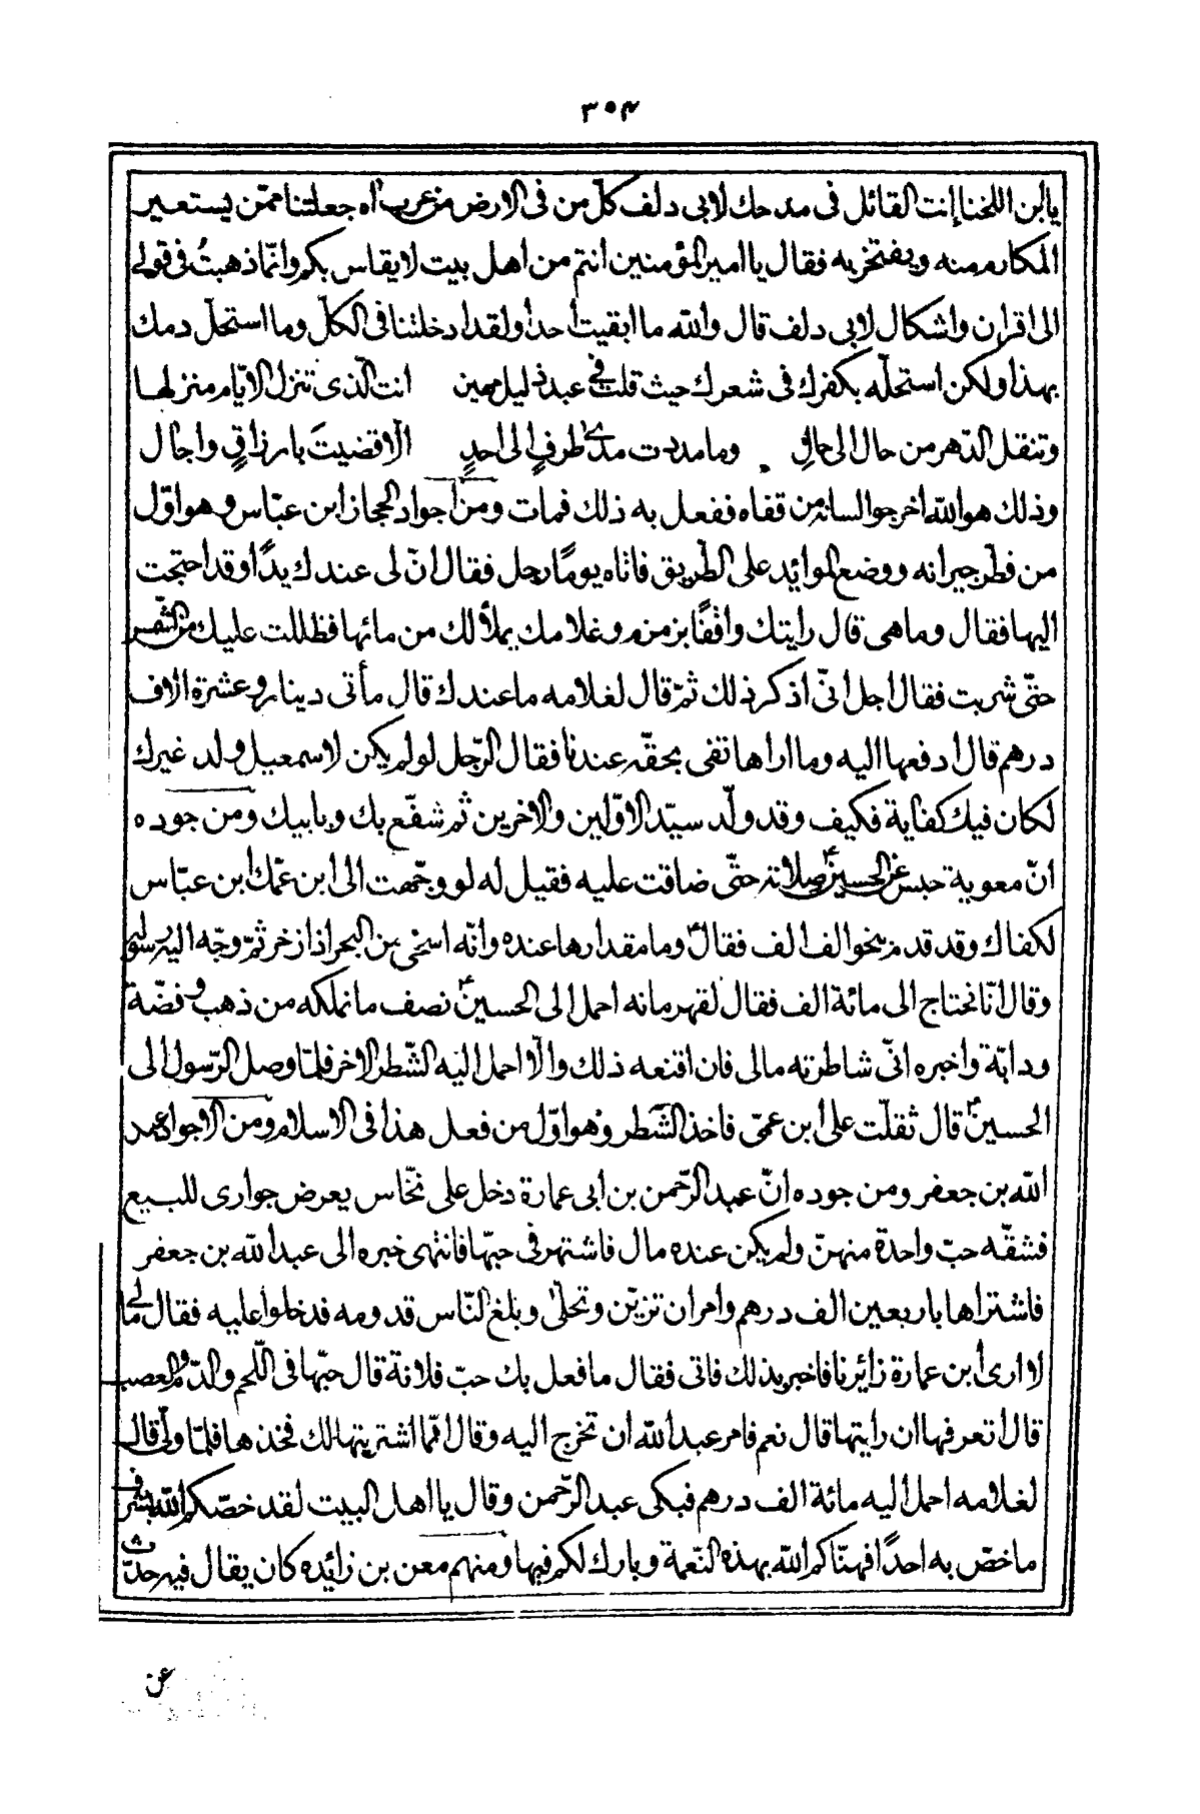 ٣٥٤
يا ابن اللخنا انت القائل فى مدحك لابى دلف كلّ من فى الارض من عرب اه جعلتنا ممّن يستعير
المكارم منه ويفتخر به فقال يا امير المؤمنين انتم من اهل بيت لا يقاس بكم وانّما ذهبتُ فى قولى
الى اقران واشكال لابى دلف قال والله ما ابقيت احدا ولقد ادخلتنا فى الكلّ وما استحلّ دمك
بهذا ولكن استحلّه بكفرك فى شعرك حيث قلت فى عبد ذليل مهين انت الّذى تنزل الايّام منزلها
وتنقل الدّهر من حال الى حالٍ وما مددت مدى طرفٍ الى احدٍ الّا قضيتَ بارزاقٍ واجال
وذلك هو الله اخرجوا لسانه من قفاه ففعل به ذلك فمات ومن اجواد الحجاز ابن عبّاس وهو اوّل
من فطّر جيرانه ووضع الموائد على الطّريق فاتاه يومًا رجل فقال انّ لى عندك يدًا وقد احتجت
اليها فقال وما هى قال رايتك واقفًا بزمزم وغلامك يملأ لك من مائها فظللت عليك من الشّمس
حتّى شربت فقال اجل انّى اذكر ذلك ثمّ قال لغلامه ما عندك قال مأتى دينار وعشرة الاف
درهم قال ادفعها اليه وما اراها تفى بحقّه عندنا فقال الرّجل لو لم يكن لاسمعيل ولد غيرك
لكان فيك كفاية فكيف وقد ولّد سيّد الاوّلين والاخرين ثم شفّع بك وبابيك ومن جوده
انّ معوية حبس عن الحسين ع صلاته حتّى ضاقت عليه فقيل له لو وجّهت الى ابن عمّك ابن عبّاس
لكفاك وقد قدم بنحو الف الف فقال ع وما مقدارها عنده وانّه اسخى من البحر اذا زخر ثمّ وجّه اليه رسوله
وقال انّا نحتاج الى مائة الف فقال لقهرمانه احمل الى الحسين ع نصف ما نملكه من ذهب وفضّة
ودابّة واخبره انّى شاطرته مالى فان اقنعه ذلك والّا احمل اليه الشّطر الاخر فلمّا وصل الرّسول الى
الحسين ع قال ثقلّت على ابن عمّى فاخذ الشّطر وهو اوّل من فعل هذا فى الاسلام ومن الاجواد عبد
الله بن جعفر ومن جوده انّ عبد الرّحمن بن ابى عمارة دخل على نخّاس يعرض جوارى للبيع
فشقّه حبّ واحدة منهنّ ولم يكن عنده مال فاشتهر فى حبّها فانتهى خبره الى عبد الله بن جعفر
فاشتراها باربعين الف درهم وامر ان تزيّن وتحلّى وبلغ النّاس قدومه فدخلوا عليه فقال مالى
لا ارى ابن عمارة زائرنا فاخبر بذلك فاتى فقال ما فعل بك حبّ فلانة قال حبّها فى اللّحم والدّم والعصب
قال اتعرفها ان رايتها قال نعم فامر عبد الله ان تخرج اليه وقال انّما اشتريتها لك فخذها فلمّا ولّى قال
لغلامه احمل اليه مائة الف درهم فبكى عبد الرّحمن وقال يا اهل البيت لقد خصّكم الله بشرف
ما خصّ به احدًا فهنّاكم الله بهذه النّعمة وبارك لكم فيها ومنهم معن بن زائده كان يقال فيه حدّث
عن